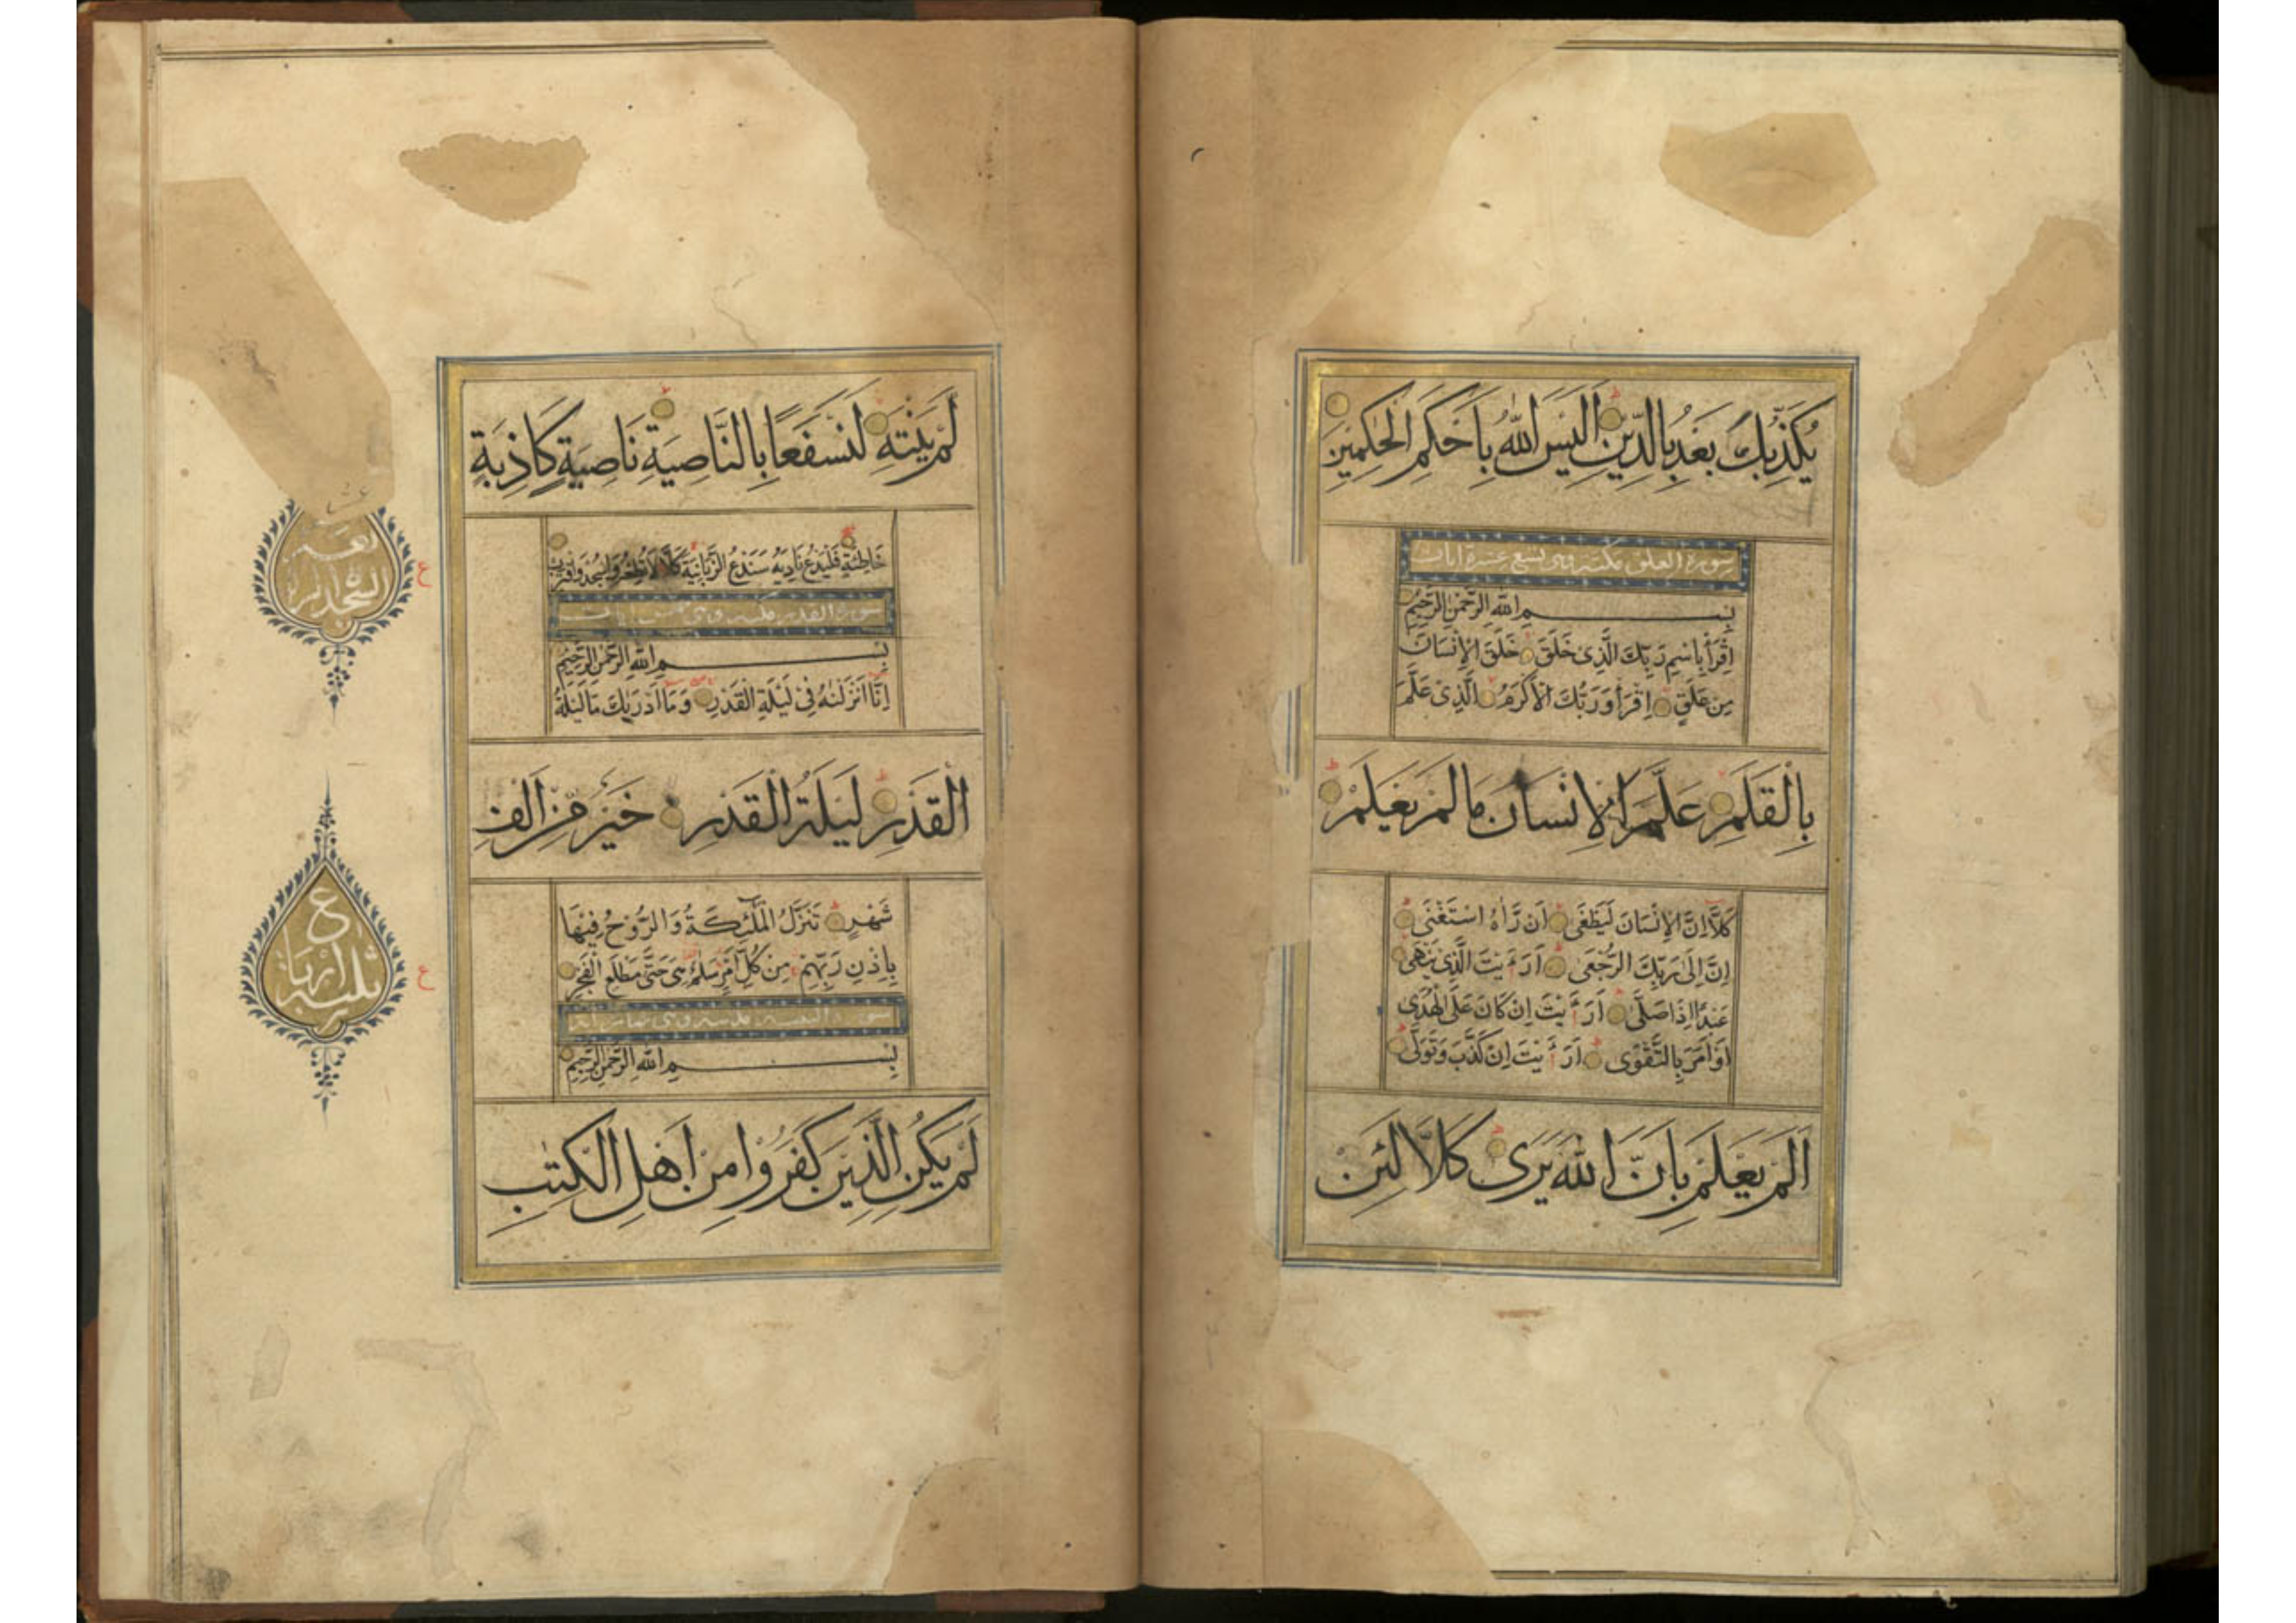 يُكَذِّبُكَ بَعْدُ بِالدِّينِ اَلَيْسَ اللّٰهُ بِاَحْكَمِ الْحٰكِمِينَ
سورة العلق مكية وهى تسع عشرة ايات
بِسْمِ اللّٰهِ الرَّحْمٰنِ الرَّحِيْمِ
اِقْرَأْ بِاسْمِ رَبِّكَ الَّذِى خَلَقَ خَلَقَ الْاِنْسَانَ
مِنْ عَلَقٍ اِقْرَأْ وَرَبُّكَ الْاَكْرَمُ الَّذِىْ عَلَّمَ
بِالْقَلَمِ عَلَّمَ الْاِنْسَانَ مَا لَمْ يَعْلَمْ
كَلَّا اِنَّ الْاِنْسَانَ لَيَطْغٰى اَنْ رَّاٰهُ اسْتَغْنٰى
اِنَّ اِلٰى رَبِّكَ الرُّجْعٰى اَرَءَيْتَ الَّذِىْ يَنْهٰى
عَبْدًا اِذَا صَلّٰى اَرَءَيْتَ اِنْ كَانَ عَلَى الْهُدٰى
اَوْ اَمَرَ بِالتَّقْوٰى اَرَءَيْتَ اِنْ كَذَّبَ وَتَوَلّٰى
اَلَمْ يَعْلَمْ بِاَنَّ اللّٰهَ يَرٰى كَلَّا لَئِنْ
لَمْ يَنْتَهِ لَنَسْفَعًا بِالنَّاصِيَةِ نَاصِيَةٍ كَاذِبَةٍ
خَاطِئَةٍ فَلْيَدْعُ نَادِيَهُ سَنَدْعُ الزَّبَانِيَةَ كَلَّا لَا تُطِعْهُ وَاسْجُدْ وَاقْتَرِبْ
سورة القدر مكية وهى خمس ايات
بِسْمِ اللّٰهِ الرَّحْمٰنِ الرَّحِيْمِ
اِنَّا اَنْزَلْنٰهُ فِىْ لَيْلَةِ الْقَدْرِ وَمَا اَدْرٰىكَ مَا لَيْلَةُ
الْقَدْرِ لَيْلَةُ الْقَدْرِ خَيْرٌ مِّنْ اَلْفِ
شَهْرٍ تَنَزَّلُ الْمَلٰئِكَةُ وَالرُّوْحُ فِيْهَا
بِاِذْنِ رَبِّهِمْ مِنْ كُلِّ اَمْرٍ سَلٰمٌ هِىَ حَتّٰى مَطْلَعِ الْفَجْرِ
سورة البينة مدنية وهى ثمان اية
بِسْمِ اللّٰهِ الرَّحْمٰنِ الرَّحِيْمِ
لَمْ يَكُنِ الَّذِيْنَ كَفَرُوْا مِنْ اَهْلِ الْكِتٰبِ
ع
ع
ع